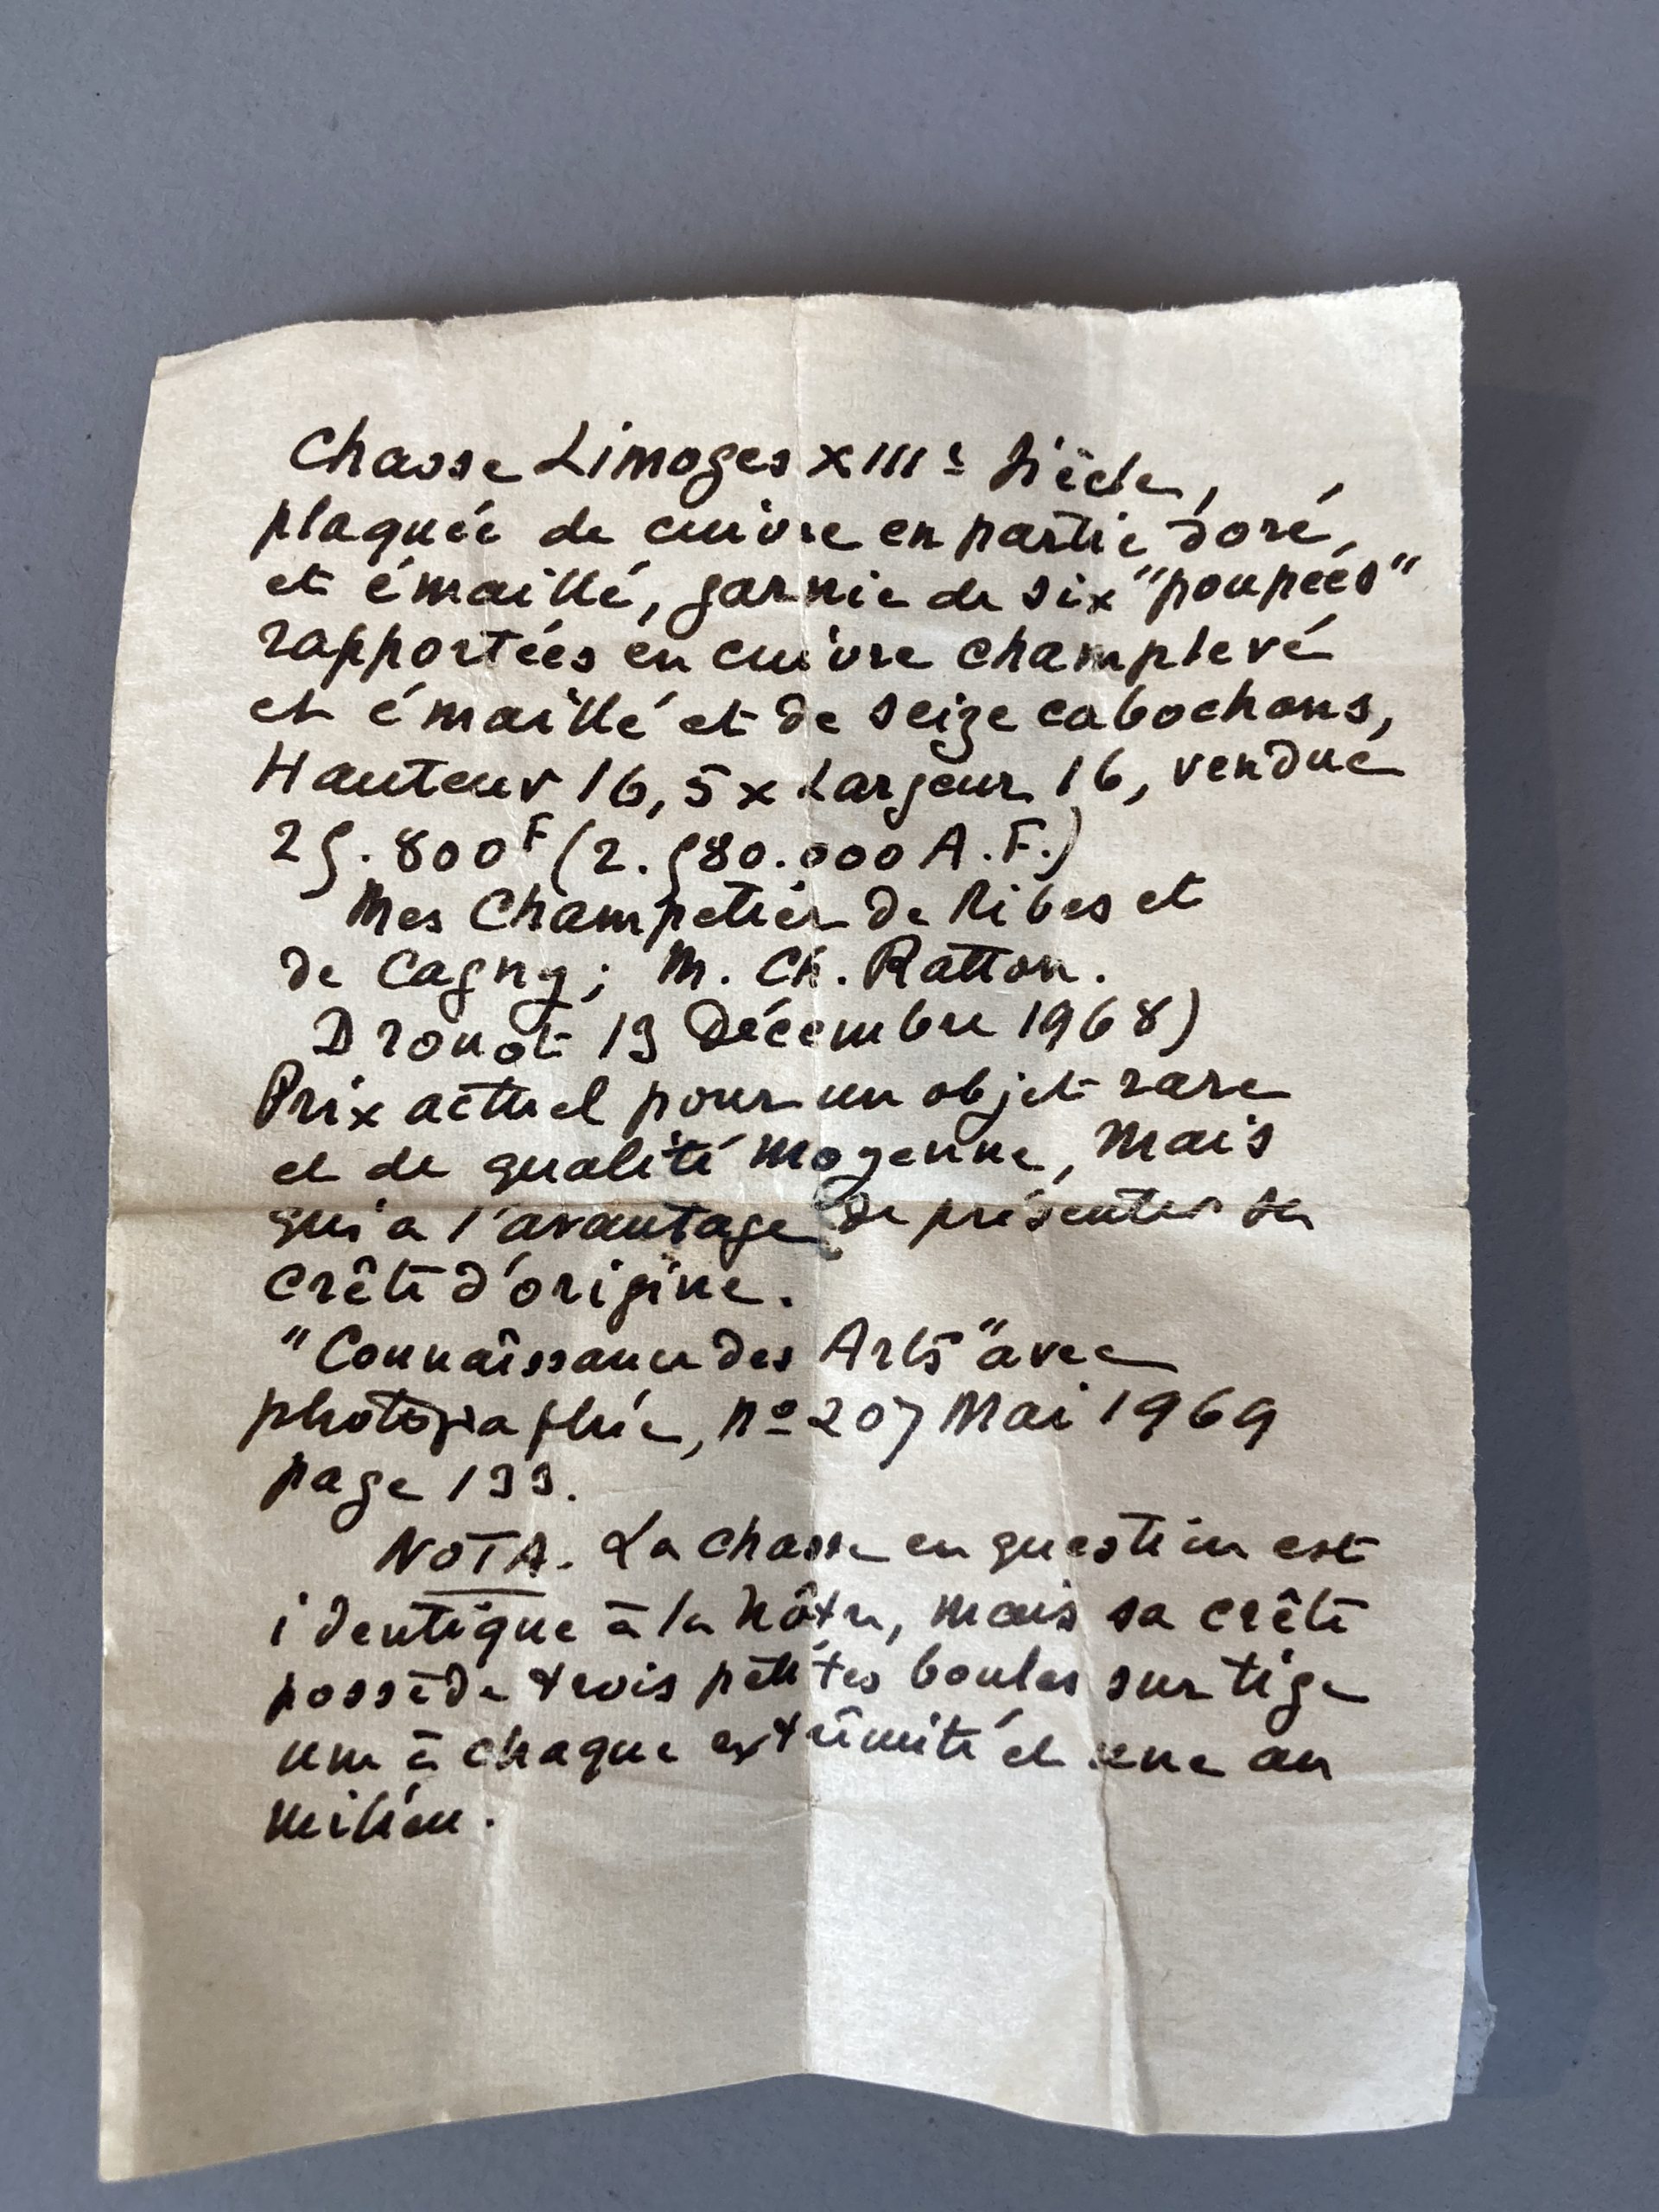 Chasse Limoges XIIIe Siècle,
plaquée de cuivre en partie doré,
et émaillé, garnie de six "poupées"
rapportées en cuivre champlevé
et émaillé et de seize cabochons,
Hauteur 16,5 x Largeur 16, vendue
25.800F (2.580.000 A.F.)
Mes Champetier de Ribes et
de Cagny; M. Ch. Ratton.
Drouot 13 Décembre 1968)
Prix actuel pour un objet rare
et de qualité moyenne, mais
qui a l'avantage de présenter sa
crête d'origine.
"Connaissance des Arts" avec
photographie, no 207 Mai 1969
page 133.
NOTA. La chasse en question est
identique à la nôtre, mais sa crête
possède trois petites boules sur tige
une à chaque extrêmité et une au
milieu.